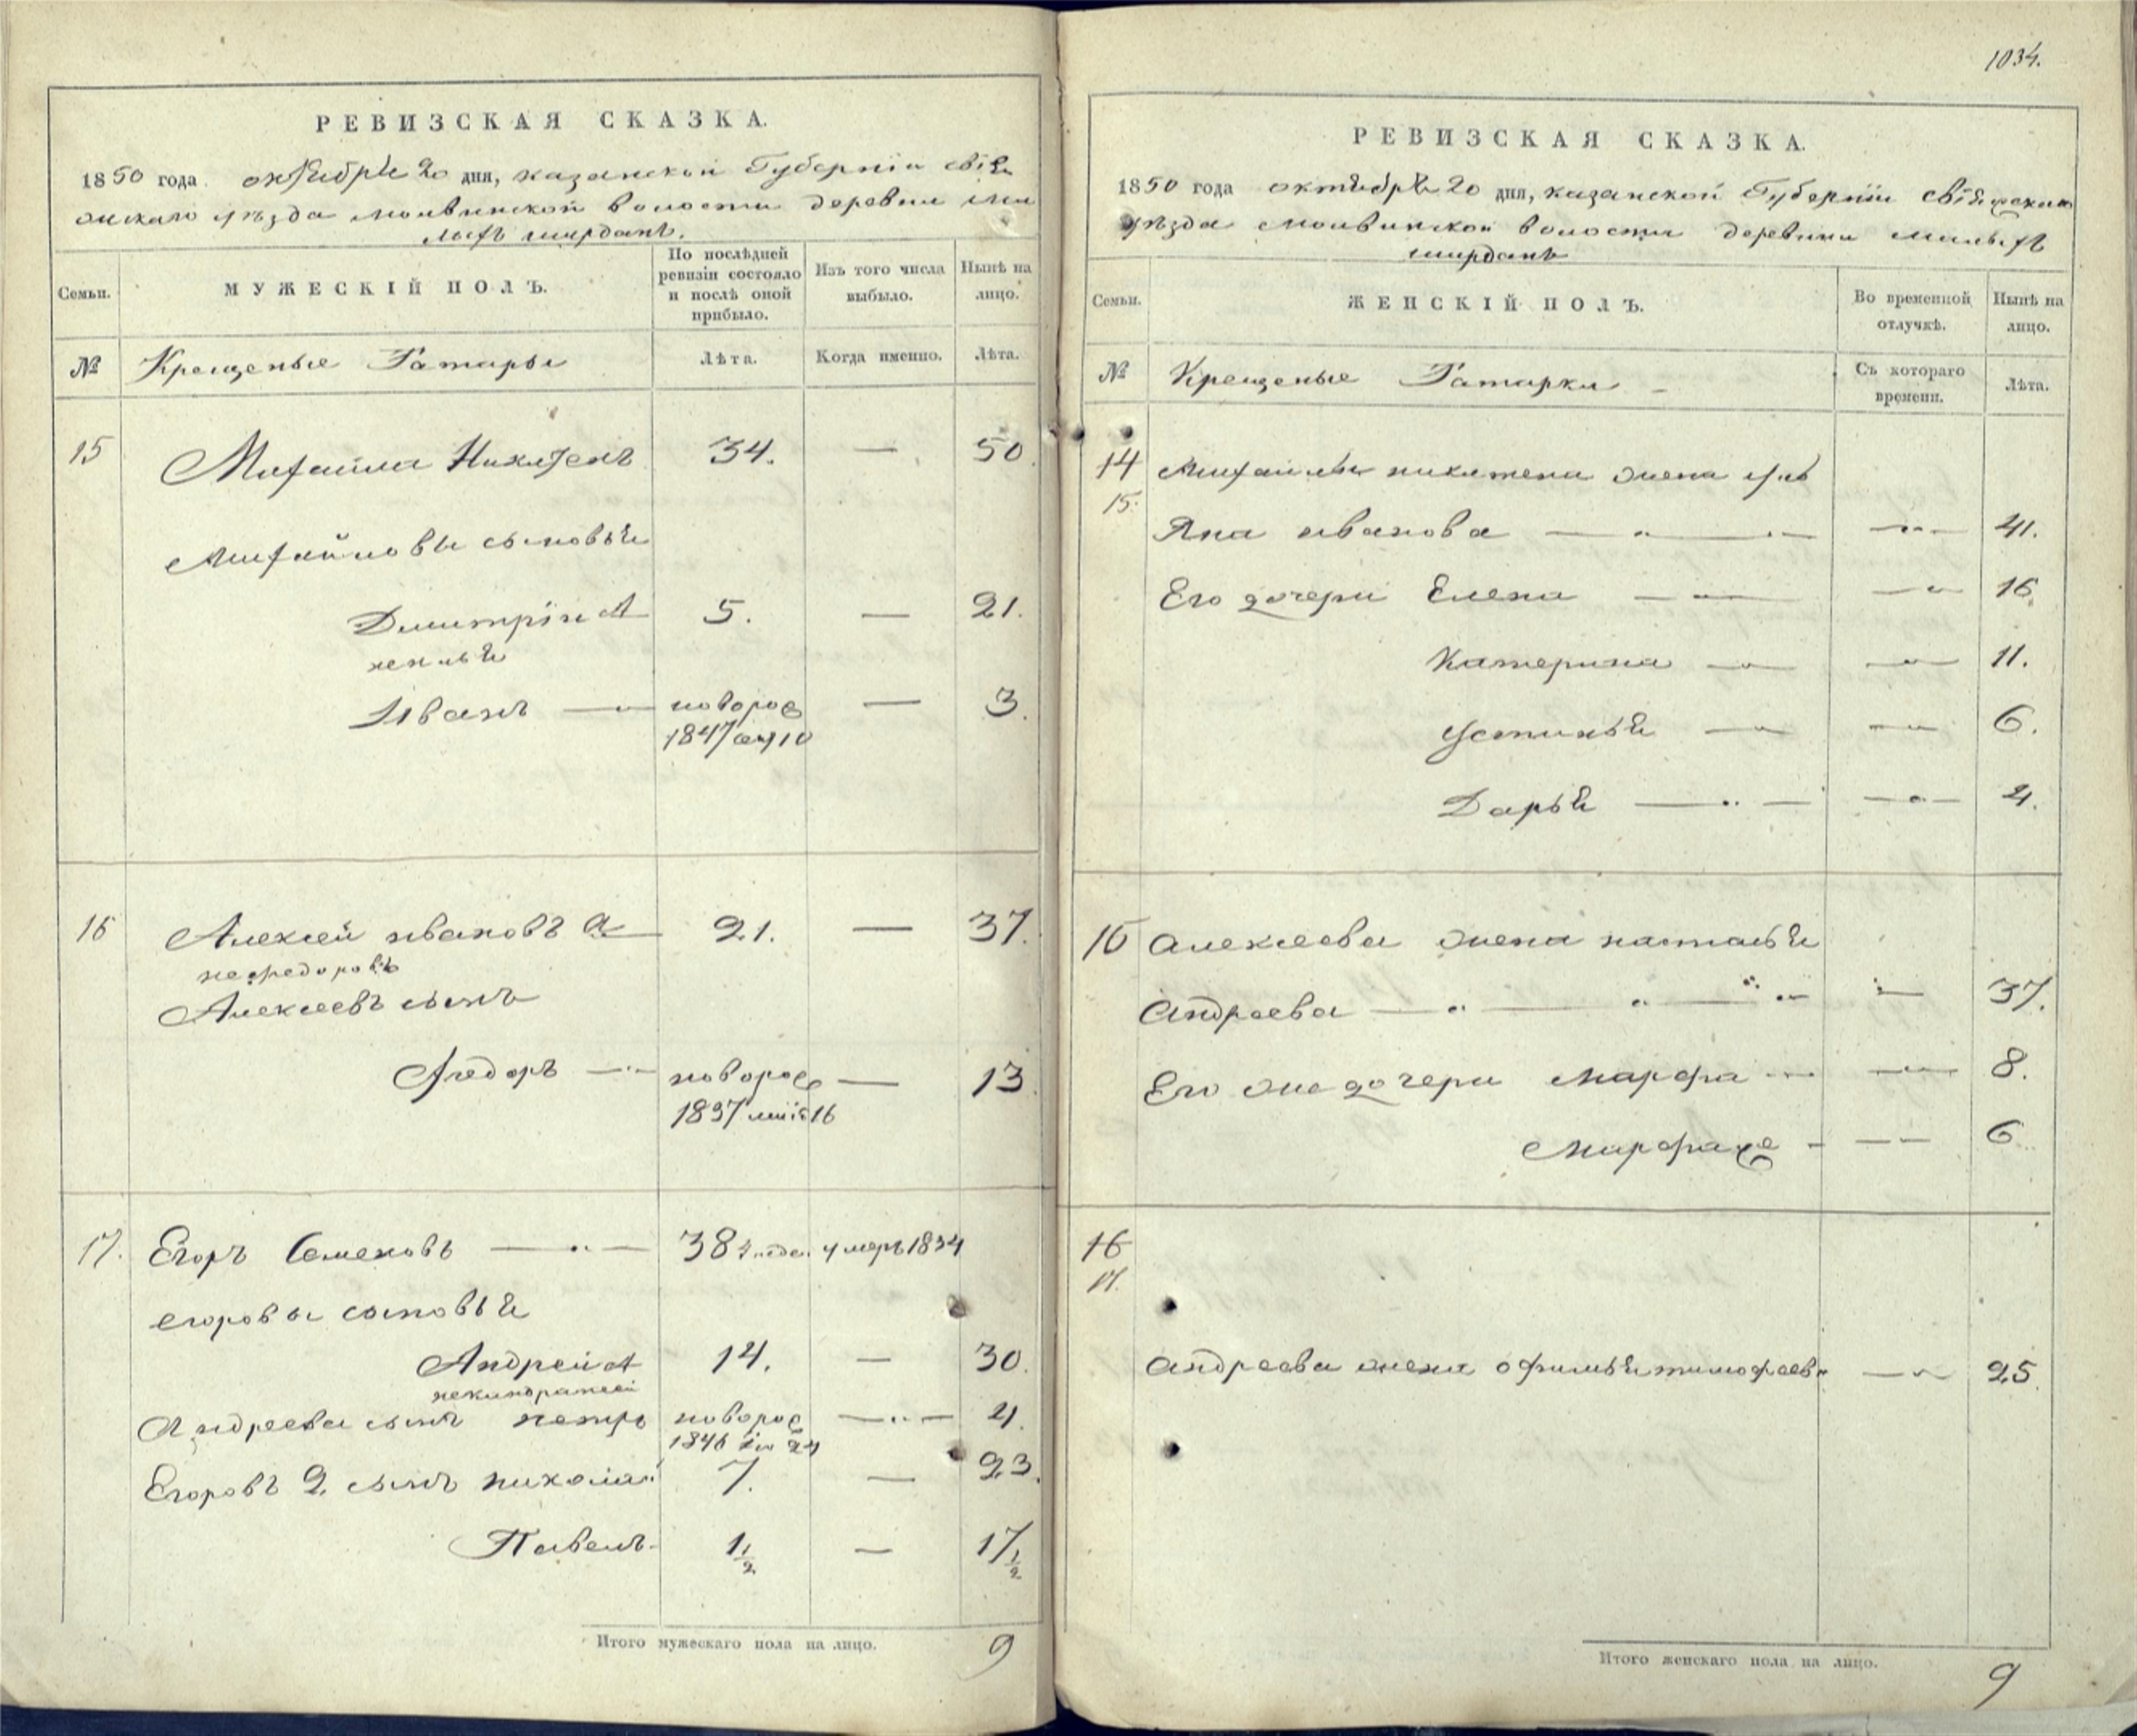 РЕВИЗСКАЯ СКАЗКА.
1850 года октября 20 дня, казанской Губернiи свiя
жскаго уѣзда молвинской волости деревни ма
лыхъ ширданъ.
Семьи.
МУЖЕСКIЙ ПОЛЪ.
По послѣдней ревизiи состояло и послѣ оной прибыло.
Изъ того числа выбыло.
Нынѣ на лицо.
№ Крещеные Татары
Лѣта.
Когда именно.
Лѣта.
15 Михайла Никитенъ 34. — 50
Михайловы сыновья
Дмитрiй А 5. — 21.
Иванъ — новорож — 3.
1847
16 Алексей ивановъ а 21. — 37.
нефедоровъ
Алексеевъ сынъ
Федоръ — новорож — 13
1837 16
17. Егоръ Семеновъ — 38 умеръ 1834
егоровы сыновья
Андрей А 14. — 30.
Андреева сынъ петръ новорож — 4.
1846 24
Егоровъ 2 сынъ николай 7. — 23.
Павелъ 1 1/2 — 17 1/2
Итого мужескаго пола на лицо. 9
1034.
РЕВИЗСКАЯ СКАЗКА.
1850 года октября 20 дня, казанской Губернiи свiяжскаго
уѣзда молвинской волости деревни малыхъ
ширданъ
Семьи.
ЖЕНСКIЙ ПОЛЪ.
Во временной отлучкѣ.
Нынѣ на лицо.
№ Крещеные Татарки
Съ котораго времени.
Лѣта.
14 Михайлы никитена жена уль
15.
яна иванова — 41.
Его дочери Елена — 16.
Катерина — 11.
Устинья — 6.
Дарья — 4.
16 Алексеева жена насталья
Андреева — 37.
Его же дочери марфа — 8.
Марфа же — 6
16
17.
Андреева жена офимья тимофеев — 25.
Итого женскаго пола на лицо. 9